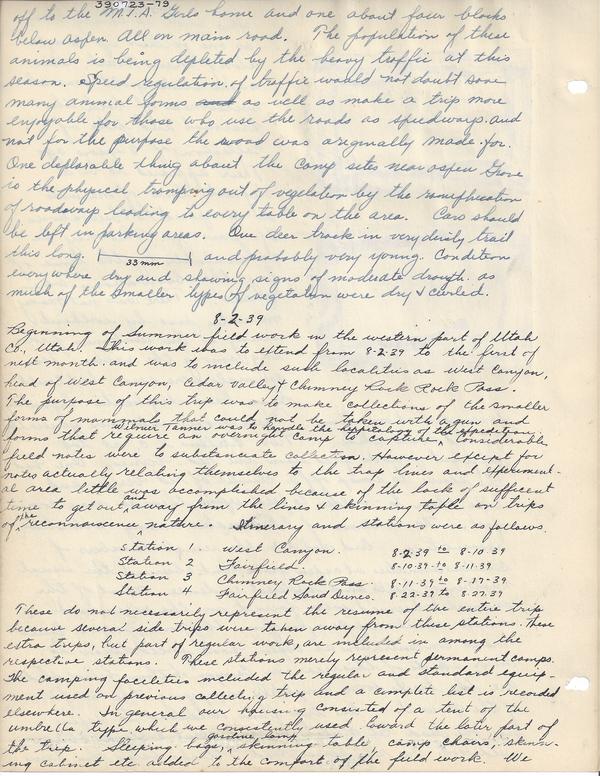 390723-79
off to the M.I.A. Girls home and one about four blocks
below aspen. All on main road. The population of these
animals is being depleted by the heavy traffic at this
season. Speed regulation of traffic would not doubt save
many animal forms and as well as make a trip more
enjoyable for those who use the roads as speedways. and
not for the purpose the road was originally made for.
One deplorable thing about the Camp sites near aspen Grove
is the physical tromping out of vegetation by the ramification
of roadways leading to every table on the area. Cars should
be left in parking areas. One deer track in very dusty trail
this long. 33 mm and probably very young. Condition
everywhere dry and showing signs of moderate drouth. as
much of the smaller types of vegetation were dry & curled.
8-2-39
Beginning of Summer field work in the western part of Utah
Co., Utah. This work was to extend from 8-2-39 to the first of
next month. and was to include such localities as West Canyon,
head of West Canyon, Cedar Valley & Chimney Rock Rock Pass.
The purpose of this trip was to make collections of the smaller
forms of mammals that could not be taken with a gun and
Wilmer Tanner was to handle the herpetology of the expedition.
forms that require an overnight camp to capture. Considerable
field notes were to substanciate collection. However except for
notes actually relating themselves to the trap lines and experiment-
al area little was accomplished because of the lack of sufficient
time to get out and away from the lines & skinning table on trips
of the reconnoiscence nature. Itinerary and stations were as follows.
Station 1 .. West Canyon. 8-2-39 to 8-10-39
Station 2 Fairfield. 8-10-39 to 8-11-39
Station 3 Chimney Rock Pass. 8-11-39 to 8-17-39
Station 4 Fairfield Sand Dunes. 8-22-39 to 8-27-39
These do not necessarily represent the resume of the entire trip
because several side trips were taken away from these stations. These
extra trips, but part of regular work, are included in among the
respective stations. These stations merely represent permanent camps.
The camping facilities included the regular and standard equip-
ment used on previous collecting trip and a complete list is recorded
elsewhere. In general our housing consisted of a tent of the
umbrella type which we consistently used toward the later part of
the trip. Sleeping bags, gasoline lamp, skinning table, camp chairs, skinn-
ing cabinet etc added to the comfort of the field work. We